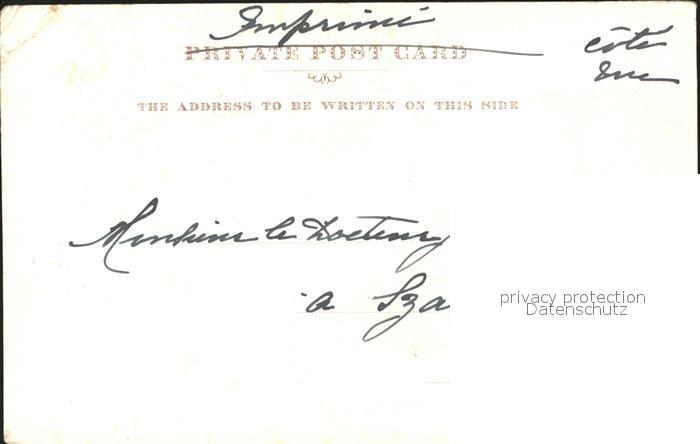 Imprimé
PRIVATE POST CARD
côté
vue
THE ADDRESS TO BE WRITTEN ON THIS SIDE
Monsieur le Docteur
a Sza
privacy protection
Datenschutz